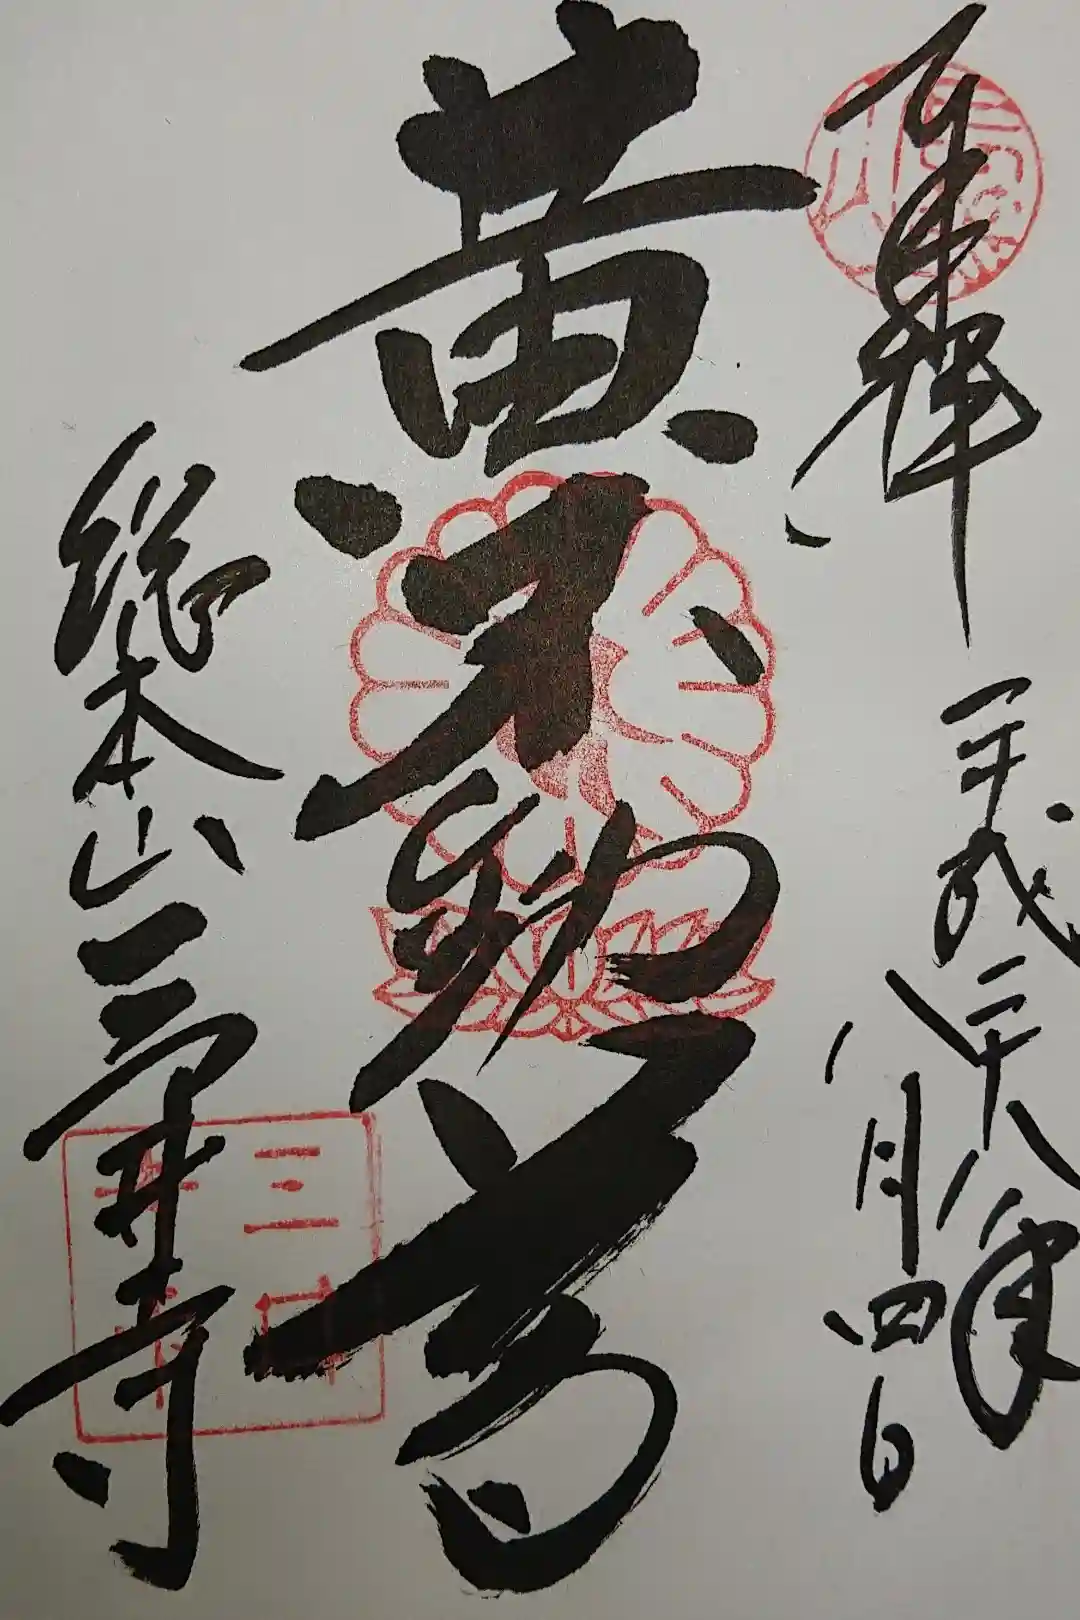 奉拝
平成二十八年
八月四日
黄不動尊
総本山三井寺
三井
寺印